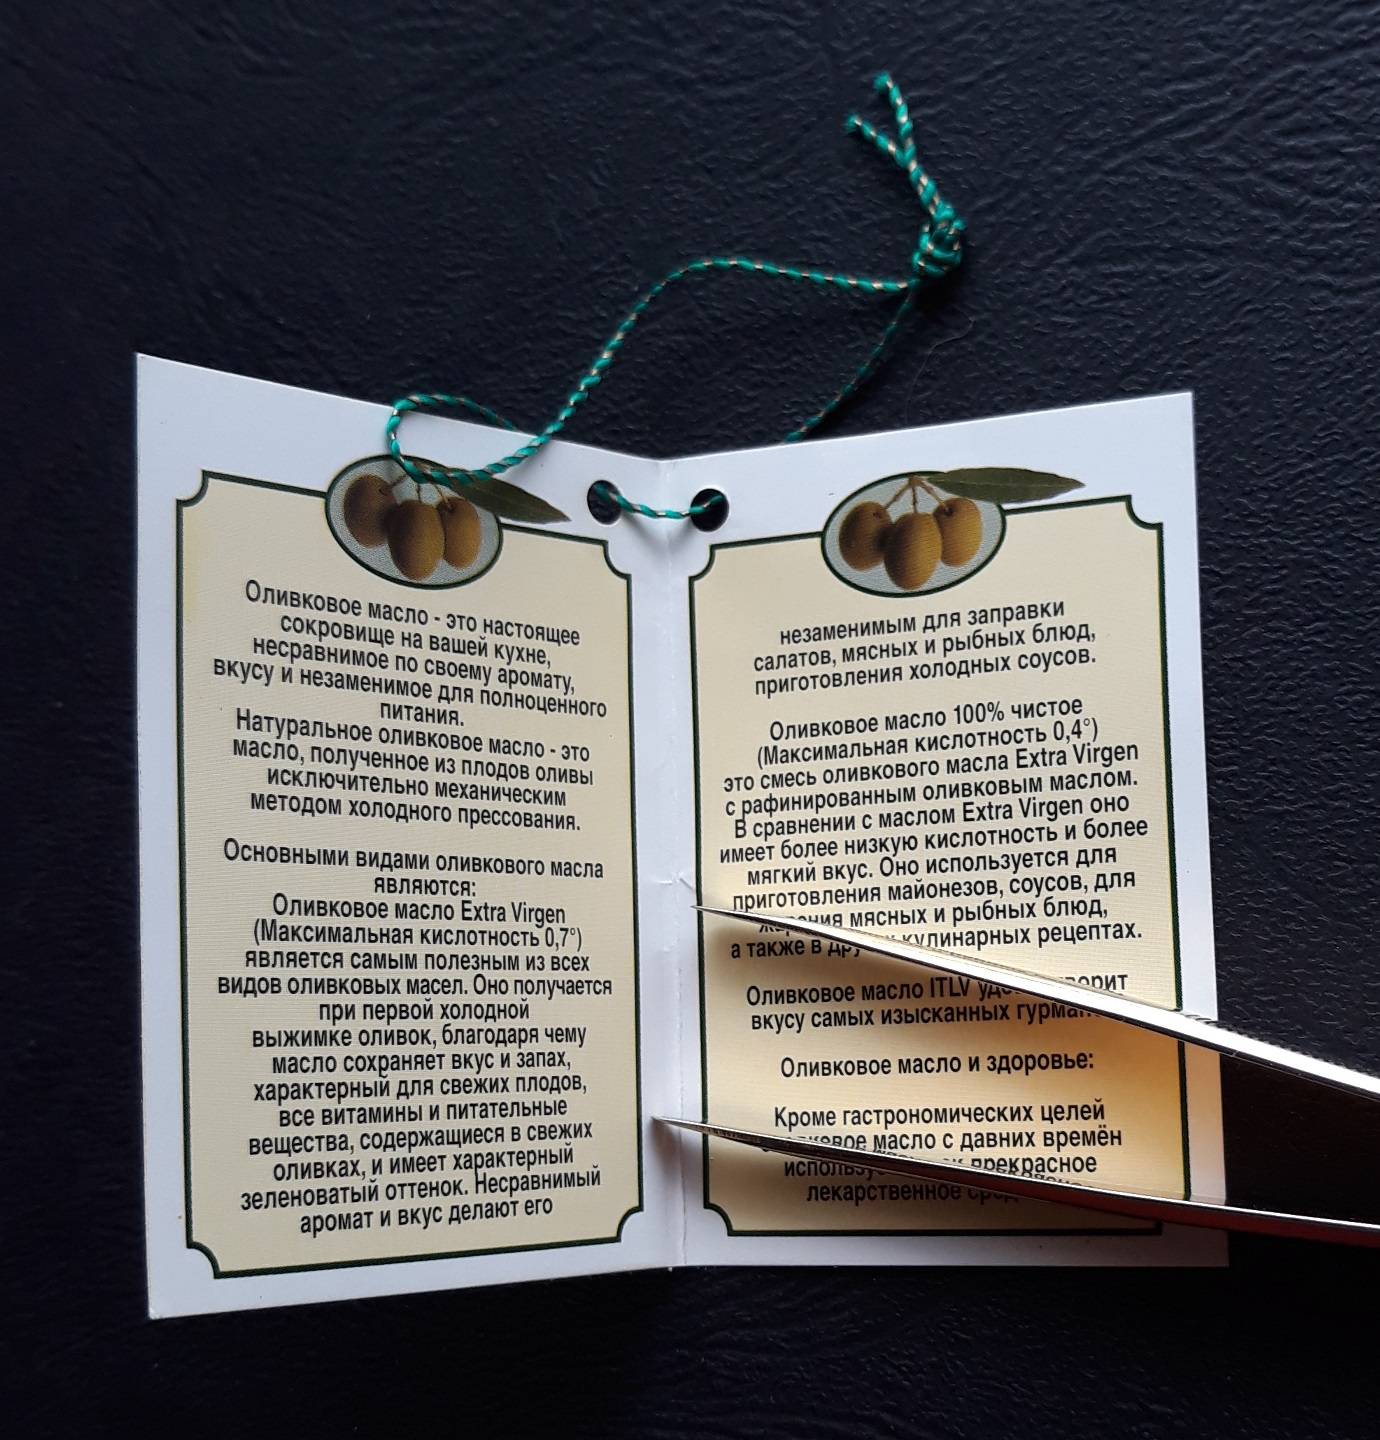 Оливковое масло - это настоящее
сокровище на вашей кухне,
несравнимое по своему аромату,
вкусу и незаменимое для полноценного
питания.
Натуральное оливковое масло - это
масло, полученное из плодов оливы
исключительно механическим
методом холодного прессования.
Основными видами оливкового масла
являются:
Оливковое масло Extra Virgen
(Максимальная кислотность 0,7°)
является самым полезным из всех
видов оливковых масел. Оно получается
при первой холодной
выжимке оливок, благодаря чему
масло сохраняет вкус и запах,
характерный для свежих плодов,
все витамины и питательные
вещества, содержащиеся в свежих
оливках, и имеет характерный
зеленоватый оттенок. Несравнимый
аромат и вкус делают его
незаменимым для заправки
салатов, мясных и рыбных блюд,
приготовления холодных соусов.
Оливковое масло 100% чистое
(Максимальная кислотность 0,4°)
это смесь оливкового масла Extra Virgen
с рафинированным оливковым маслом.
В сравнении с маслом Extra Virgen оно
имеет более низкую кислотность и более
мягкий вкус. Оно используется для
приготовления майонезов, соусов, для
жарения мясных и рыбных блюд,
а также в кулинарных рецептах.
Оливковое масло ITLV
вкусу самых изысканных
Оливковое масло и здоровье:
Кроме гастрономических целей
масло с давних времён
прекрасное
лекарственное